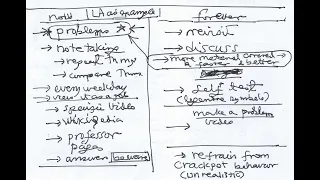 now LA as example
→ problems
→ note taking
→ repeat Thry
→ compare Thrm
→ every weekday
→ view it as a set
→ specific video
→ Wikipedia
→ professor pages
→ answer beware
forever
→ revisit
→ discuss
→ more material covered → faster & better
→ self test
(legendre symbols)
make a problem video
→ refrain from crackpot behaviour
(unrealistic)